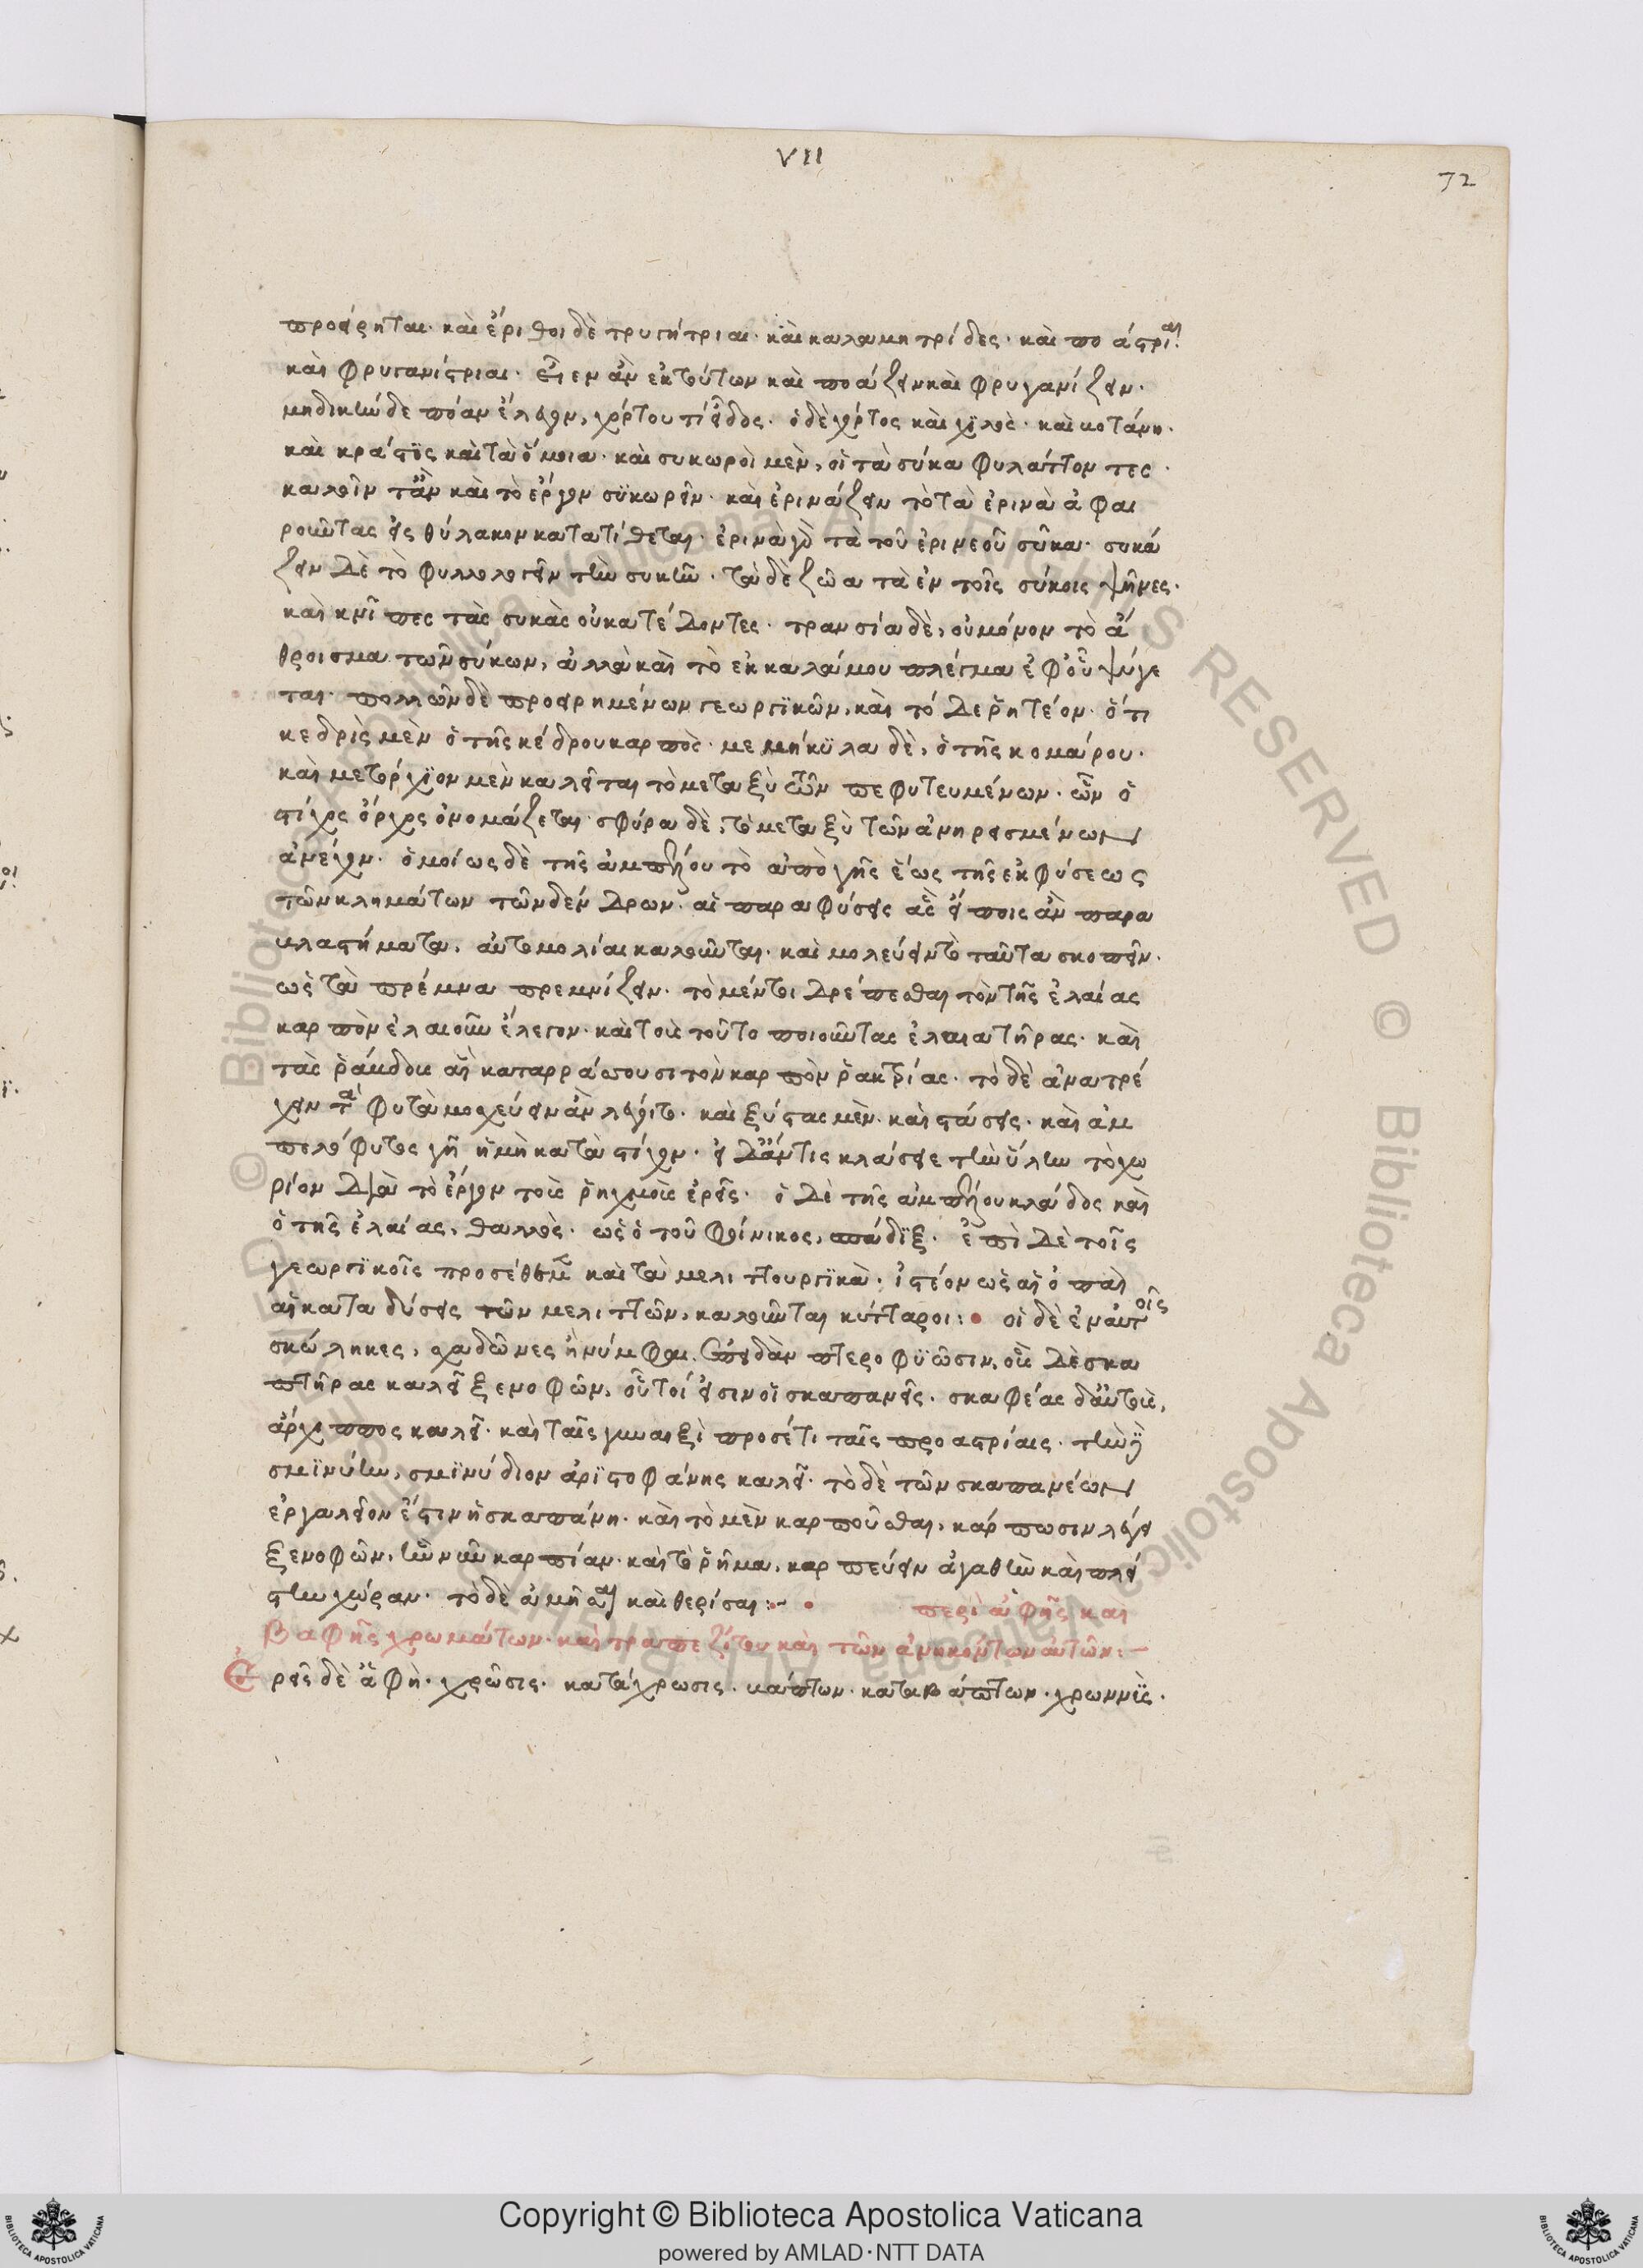 VII
72
προείρηται· καὶ ἔριθοι δὲ τρυγήτριαι· καὶ καλαμητρίδες· καὶ ποάστριαι·
καὶ φρυγανίστριαι· εἶεν ἂν ἐκ τούτων καὶ ποάζειν καὶ φρυγανίζειν·
μηδικὴν δε πόαν ἔλεγον, χόρτου τί εἶδος· ὁ δὲ χόρτος καὶ χιλὸς· καὶ βοτάνη·
καὶ κράστϊς καὶ τὰ ὅμοια· καὶ συκωροὶ μὲν, οἱ τὰ σύκα φυλάττοντες·
καλοῖν τἂν καὶ τὸ ἔργον σϋκωρεῖν· καὶ ἐρινάζειν τὸ τὰ ἐρινὰ ἀφαι
ροῦντας εἰς θύλακον κατατίθεται· ἐρινὰ γὰρ τὰ τοῦ ἐρινεοῦ σῦκα· συκά
ζειν δὲ τὸ φυλλολογεῖν τὴν συκῆν· τὰ δὲ ζῶα τὰ ἐν τοῖς σύκοις ψῆνες·
καὶ κνῖπες τὰς συκὰς οὐκατέδοντες· τρασία δὲ, οὐ μόνον τὸ ἄ
θροισμα τῶν σύκων, ἀλλὰ καὶ τὸ ἐκ καλάμου πλέγμα ἐφ' οὗ ψύγε
ται· πολλῶν δὲ προειρημένων γεωργϊκῶν, καὶ τό δε ῥητέον· ὅτι
κεδρὶς μὲν ὁ τῆς κέδρου καρπὸς· μεμήκϋλα δὲ, ὁ τῆς κομάρου·
καὶ μετόρχϊον μὲν καλεῖται τὸ μεταξὺ τῶν πεφυτευμένων· ὧν ὁ
στίχος ὄρχος ὀνομάζεται· σφύρα δὲ, τὸ μεταξὺ τῶν ἀνηροσμένων
ἀνέχον· ὁμοίως δὲ τῆς ἀμπέλου τὸ ἀπὸ γῆς ἕως τῆς ἐκφύσεως
τῶν κλημάτων τῶν δένδρων· αἱ παραφύσεις ἃς εἴποις ἂν παρα
βλαστήματα, αὐτομολίαι καλοῦνται· καὶ μολεύειν τὸ ταῦτα σκοπεῖν·
ὡς τὰ πρέμνα πρεμνίζειν· τὸ μέντοι δρέπεσθαι τὸν τῆς ἐλαίας
καρπὸν ἐλαιοῦν ἔλεγον· καὶ τοὺς τοῦτο ποιοῦντας ἐλαιατῆρας· καὶ
τὰς ῥάβδους αἳ καταρράσσουσι τὸν καρπὸν ῥακτρίας· τὸ δὲ ἀνατρέ
χειν τὰ φυτὰ μοσχεύειν ἂν λέγοιτο· καὶ ξύστας μὲν· καὶ στάσεις· καὶ ἀμ
πελόφυτος γῆ ἡ μὴ κατὰ στίχον· εἰ δ' ἄν τις κλαύσειε τὴν ὕλην τὸ χω
ρίον διὰ τὸ ἔργον τοὺς ῥηχμοὺς ἐρεῖς· ὁ δὲ τῆς ἀμπέλου κλάδος καὶ
ὁ τῆς ἐλαίας, θαλλὸς· ὡς ὁ τοῦ φοίνικος, σπάδϊξ· ἐπὶ δὲ τοῖς
γεωργϊκοῖς προσέθεμεν καὶ τὰ μελιττουργϊκὰ· ἰστέον ὡς αἱ ὀπαὶ
αἱ καταδύσεις τῶν μελιττῶν, καλοῦνται κύτταροι: οἱ δὲ ἐν αὐτοῖς
σκώληκες, σχαδῶνες ἢ νύμφαι. ἐπειδὰν πτεροφϋῶσιν, οὓς δὲ σκα
πτῆρας καλεῖ ξενοφῶν, οὗτοί εἰσιν οἱ σκαπανεῖς· σκαφέας δ' αὐτοὺς,
ἄρχιππος καλεῖ· καὶ ταῖς γυναιξὶ προσέτι ταῖς προαστρίαις· τὴν γὰρ
σμϊνύην, σμϊνύδιον ἀρϊστοφάνης καλεῖ· τὸ δὲ τῶν σκαπανέων
ἐργαλεῖον ἔστιν ἡ σκαπάνη· καὶ τὸ μὲν καρποῦσθαι, κάρπωσιν λέγει
ξενοφῶν, ἣν νῦν καρπίαν· καὶ τὸ ῥῆμα, καρπεύειν ἀγαθὴν καὶ πλεί
στην χώραν· τὸ δὲ ἀμῆσαι καὶ θερίσαι:- περὶ ἀφῆς καὶ
βαφῆς χρωμάτων· καὶ τραπεζίτου καὶ τῶν ἀνηκόντων αὐτῶν:-
Ἐρεῖς δὲ ἁφὴ· χρῶσις· κατάχρωσις· βάπτων· καταβάπτων· χρωννὺς·
Copyright © Biblioteca Apostolica Vaticana
powered by AMLAD·NTT DATA